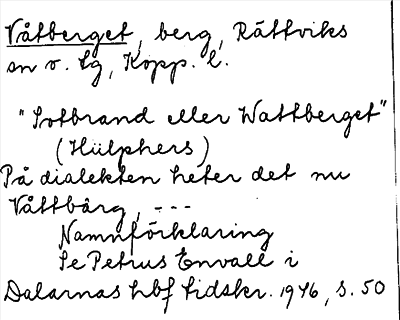 Våtberget, berg, Rättviks
sn o. tg, Kopp. l.
"Sotbrand eller Wattberget"
(Hülphers)
På dialekten heter det nu
Våttbärg, ---
Namnförklaring
Se Petrus Envall i
Dalarnas hbf tidskr. 1946, s. 50